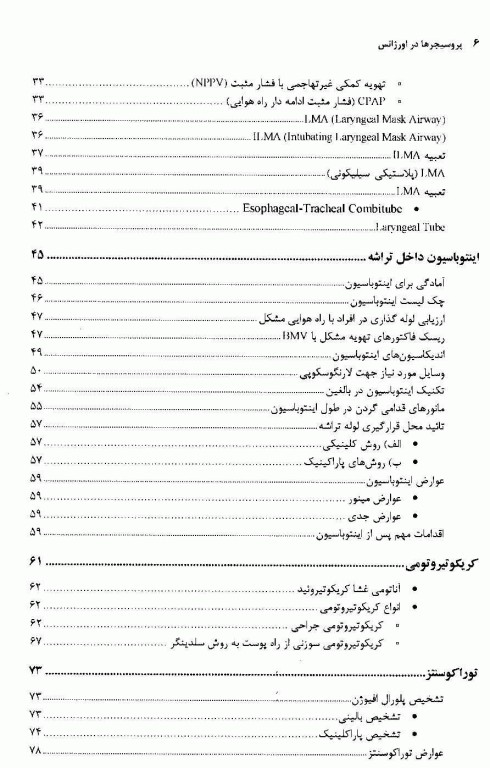 ۶ پروسیجرها در اورژانس
▫ تهویه کمکی غیرتهاجمی با فشار مثبت (NPPV) ........ ۳۳
▫ CPAP (فشار مثبت ادامه دار راه هوایی) ........ ۳۳
LMA (Laryngeal Mask Airway) ........ ۳۶
ILMA (Intubating Laryngeal Mask Airway) ........ ۳۶
تعبیه ILMA ........ ۳۷
LMA (پلاستیکی سیلیکونی) ........ ۳۹
تعبیه LMA ........ ۳۹
• Esophageal-Tracheal Combitube ........ ۴۱
Laryngeal Tube ........ ۴۲
اینتوباسیون داخل تراشه ........ ۴۵
آمادگی برای اینتوباسیون ........ ۴۵
چک لیست اینتوباسیون ........ ۴۶
ارزیابی لوله گذاری در افراد با راه هوایی مشکل ........ ۴۷
ریسک فاکتورهای تهویه مشکل با BMV ........ ۴۷
اندیکاسیون‌های اینتوباسیون ........ ۴۹
وسایل مورد نیاز جهت لارنگوسکوپی ........ ۵۰
تکنیک اینتوباسیون در بالغین ........ ۵۴
مانورهای قدامی گردن در طول اینتوباسیون ........ ۵۵
تائید محل قرارگیری لوله تراشه ........ ۵۷
• الف) روش کلینیکی ........ ۵۷
• ب) روش‌های پاراکینیک ........ ۵۷
عوارض اینتوباسیون ........ ۵۹
• عوارض مینور ........ ۵۹
• عوارض جدی ........ ۵۹
اقدامات مهم پس از اینتوباسیون ........ ۵۹
کریکوتیروتومی ........ ۶۱
• آناتومی غشا کریکوتیروئید ........ ۶۲
• انواع کریکوتیروتومی ........ ۶۲
▫ کریکوتیروتومی جراحی ........ ۶۲
▫ کریکوتیروتومی سوزنی از راه پوست به روش سلدینگر ........ ۶۷
توراکوسنتز ........ ۷۳
تشخیص پلورال افیوژن ........ ۷۳
• تشخیص بالینی ........ ۷۳
• تشخیص پاراکلینیک ........ ۷۴
عوارض توراکوسنتز ........ ۷۸